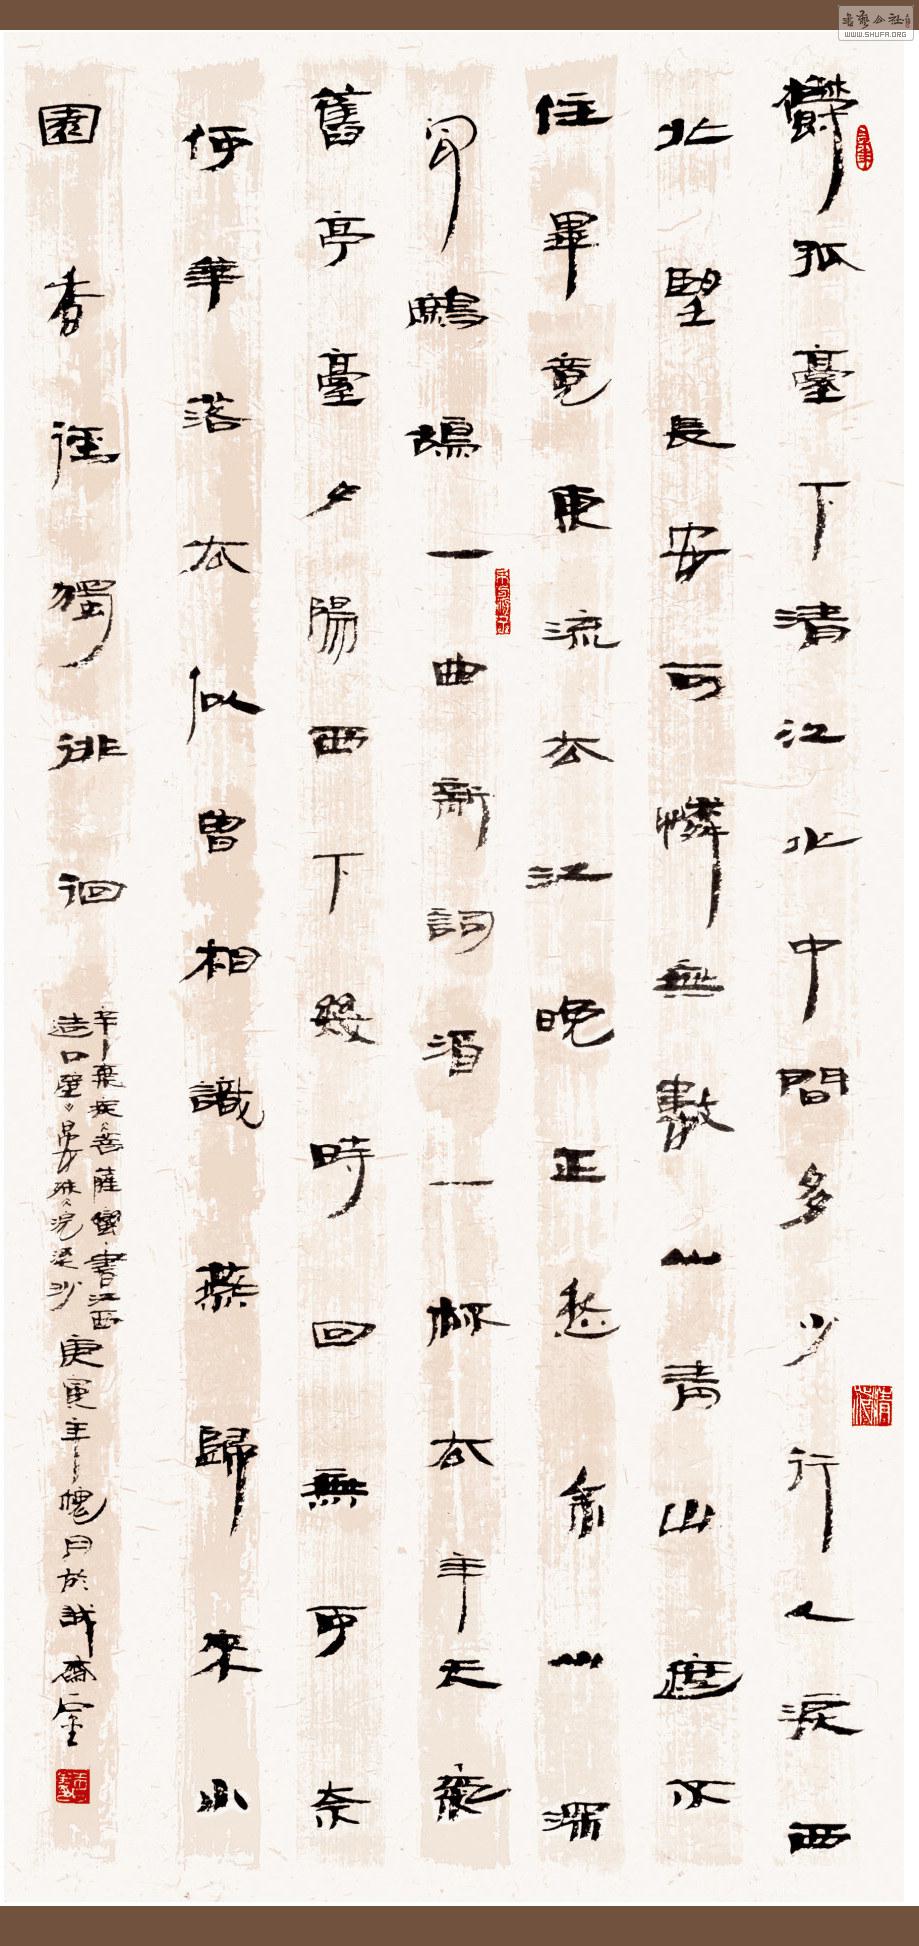 鬱孤臺下清江水中間多少行人淚西
北望長安可憐無數山青山遮不
住畢竟東流去江晚正愁余山深
聞鷓鴣一曲新詞酒一杯去年天氣
舊亭臺夕陽西下幾時回無可奈
何華落去似曾相識燕歸來小
園香徑獨徘徊
辛棄疾菩薩蠻書江西
造口壁晏殊浣溪沙
庚寅年槐月於誠齋
書藝公社
WWW.SHUFA.ORG